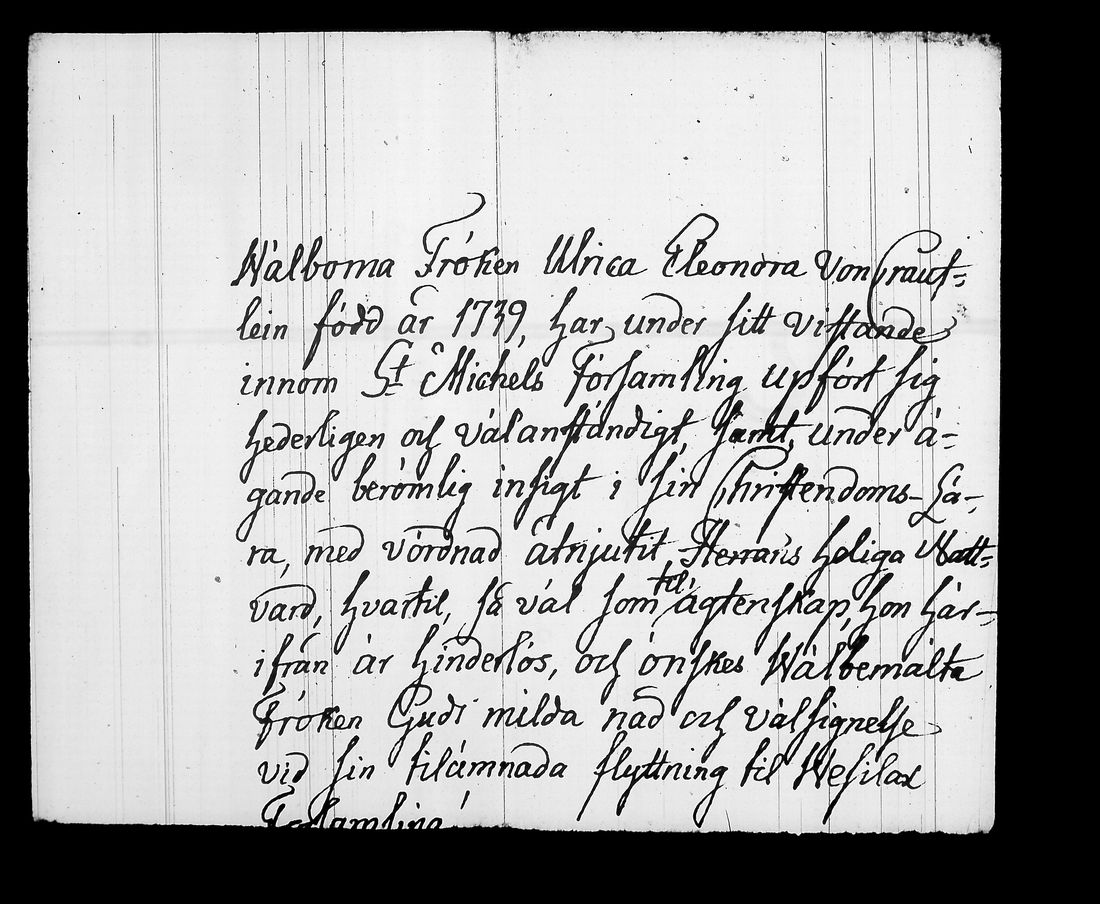 Wälborna Fröken Ulrica Eleonora Von Crauf-
lein född år 1739, har under sitt vistande
innom St Michels Församling upfört sig
hederligen och välanständigt, samt, under ä-
gande berömlig insigt i sin Christendoms-Lä-
ra, med vördnad åtnjutit Herrans heliga Natt-
vard, hvartil, så väl som til ägtenskap, hon här-
ifrån är hinderlös, och önskes Wälbemälta
Fröken Guds milda nåd och välsignelse
vid sin tilämnada flyttning til Wesilax
Församling